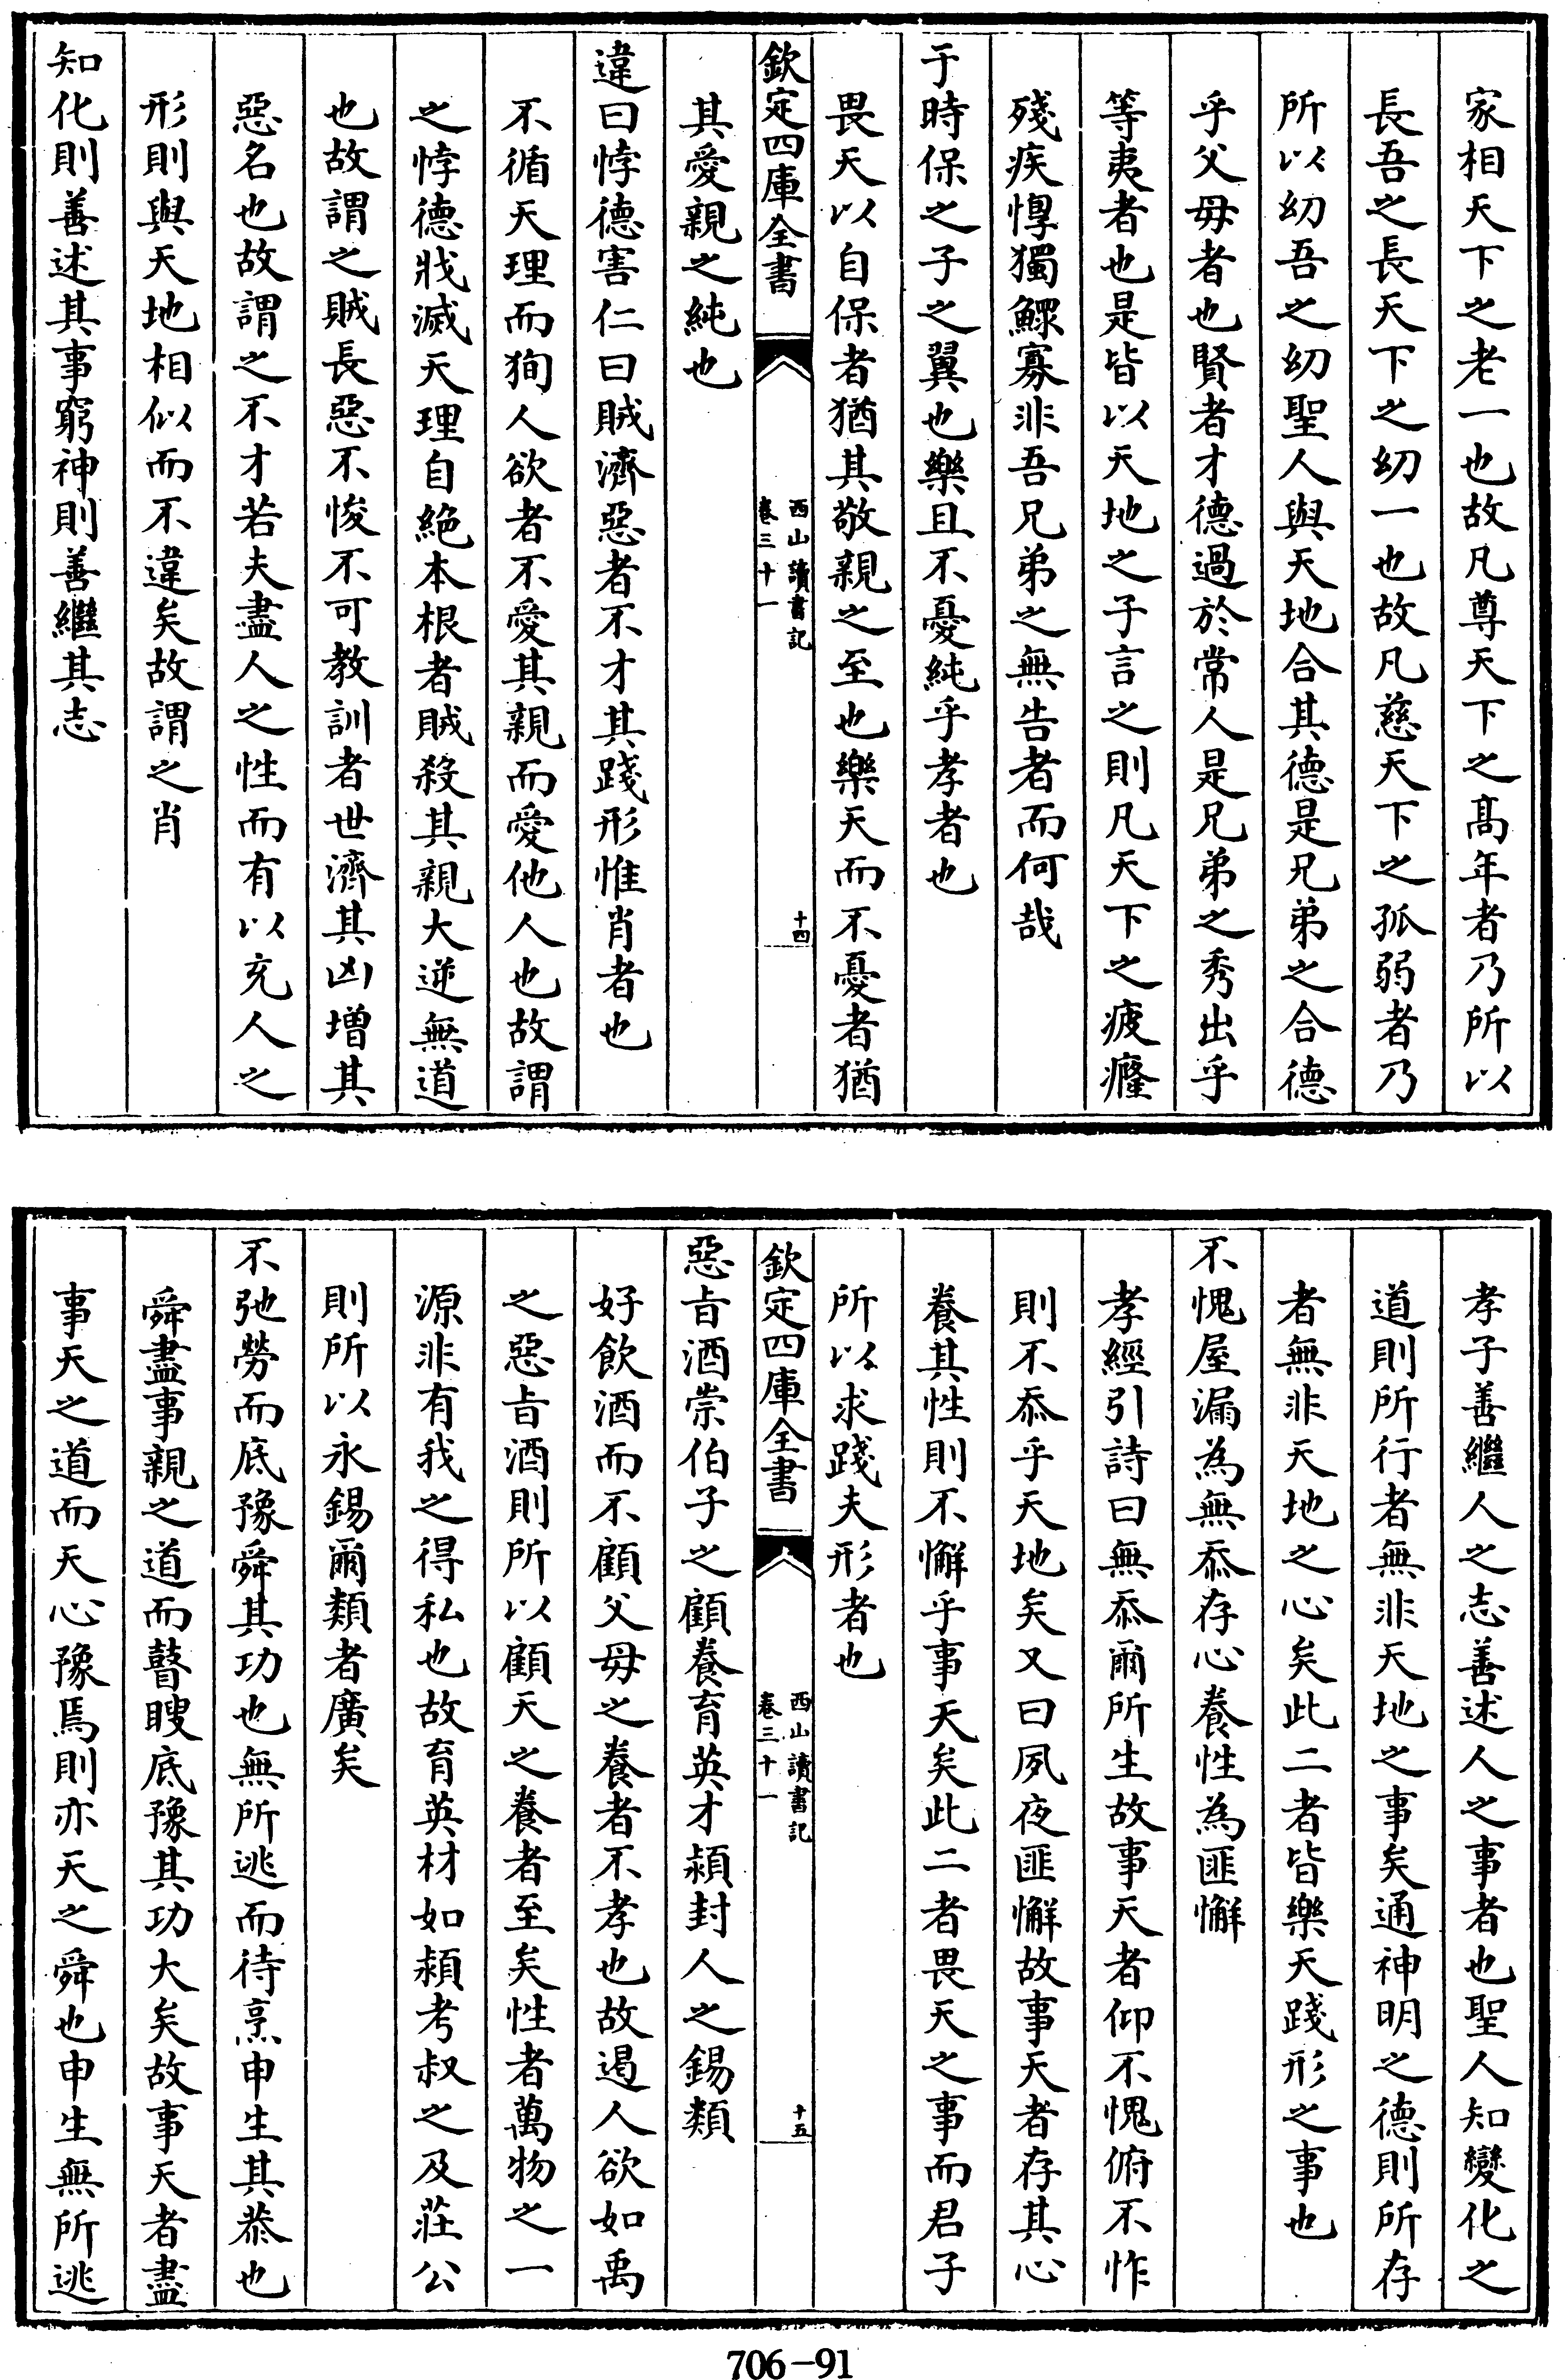 家相天下之老一也故凡尊天下之髙年者乃所以
長吾之長天下之幼一也故凡慈天下之孤弱者乃
所以幼吾之幼聖人與天地合其德是兄弟之合德
乎父母者也賢者才德過於常人是兄弟之秀出乎
等夷者也是皆以天地之子言之則凡天下之疲癃
殘疾惸獨鰥寡非吾兄弟之無告者而何哉
于時保之子之翼也樂且不憂純乎孝者也
畏天以自保者猶其敬親之至也樂天而不憂者猶
欽定四庫全書
西山讀書記
卷三十一
十四
其愛親之純也
違曰悖德害仁曰賊濟惡者不才其踐形惟肖者也
不循天理而狥人欲者不愛其親而愛他人也故謂
之悖德戕滅天理自絶本根者賊殺其親大逆無道
也故謂之賊長惡不悛不可教訓者世濟其凶增其
惡名也故謂之不才若夫盡人之性而有以充人之
形則與天地相似而不違矣故謂之肖
知化則善述其事窮神則善繼其志
孝子善繼人之志善述人之事者也聖人知變化之
道則所行者無非天地之事矣通神明之德則所存
者無非天地之心矣此二者皆樂天踐形之事也
不愧屋漏為無忝存心養性為匪懈
孝經引詩曰無忝爾所生故事天者仰不愧俯不怍
則不忝乎天地矣又曰夙夜匪懈故事天者存其心
養其性則不懈乎事天矣此二者畏天之事而君子
所以求踐夫形者也
欽定四庫全書
西山讀書記
卷三十一
十五
惡旨酒崇伯子之顧養育英才潁封人之錫類
好飲酒而不顧父母之養者不孝也故遏人欲如禹
之惡旨酒則所以顧天之養者至矣性者萬物之一
源非有我之得私也故育英材如潁考叔之及莊公
則所以永錫爾類者廣矣
不弛勞而底豫舜其功也無所逃而待烹申生其恭也
舜盡事親之道而瞽瞍底豫其功大矣故事天者盡
事天之道而天心豫焉則亦天之舜也申生無所逃
706-91